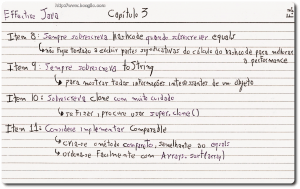 http://www.knuglla.com/
Effective Java Capítulo 3
Item 8: Sempre sobrescreva hashcode quando sobrescrever equals
não fique tentado a excluir partes significativas do cálculo do hashcode para melhorar
a performance
Item 9: Sempre sobrescreva toString
para mostrar todas informações interessantes de um objeto
Item 10: Sobrescreva clone com muito cuidado
se fizer, procure usar super.clone()
Item 11: Considere implementar Comparable
cria-se o método compareTo, semelhante ao equals
ordena-se facilmente com Arrays.sort(array)